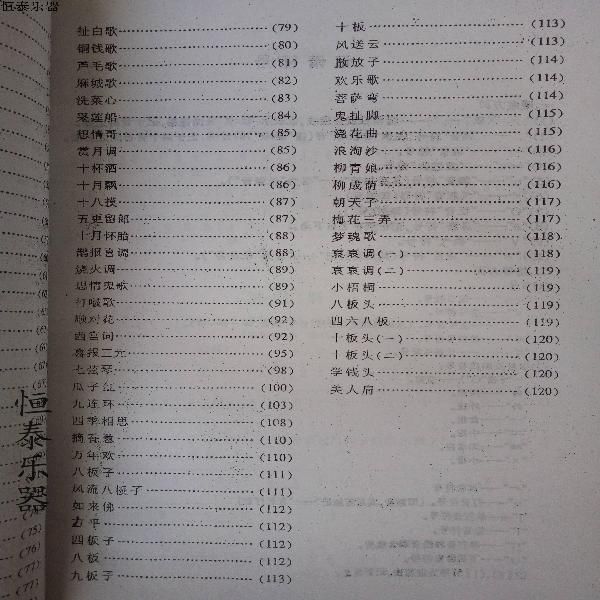 恒泰乐器
扯白歌 (79)
铜钱歌 (80)
芦毛歌 (81)
麻城歌 (82)
洗菜心 (83)
采莲船 (84)
想情哥 (85)
赏月调 (85)
十杯酒 (86)
十月飘 (86)
十八摸 (87)
五更留郎 (87)
十月怀胎 (88)
鹊报喜调 (88)
烧火调 (89)
思情鬼歌 (89)
打啵歌 (91)
顺对花 (92)
西宫词 (92)
喜报三元 (95)
七弦琴 (98)
瓜子红 (100)
九连环 (103)
四季相思 (108)
摘苍葱 (110)
万年欢 (110)
八板子 (111)
风流八板子 (111)
如来佛 (112)
方平 (112)
四板子 (112)
八板 (112)
九板子 (113)
十板 (113)
风送云 (113)
散放子 (114)
欢乐歌 (114)
菩萨弯 (114)
鬼扯脚 (115)
浇花曲 (115)
浪淘纱 (116)
柳青娘 (116)
柳成荫 (116)
朝天子 (117)
梅花三弄 (117)
梦魂歌 (118)
哀哀调(一) (118)
哀哀调(二) (119)
小梧桐 (119)
八板头 (119)
四六八板 (119)
十板头(一) (120)
十板头(二) (120)
学钱头 (120)
美人肩 (120)
恒泰乐器
(75)
(76)
(77)
(77)